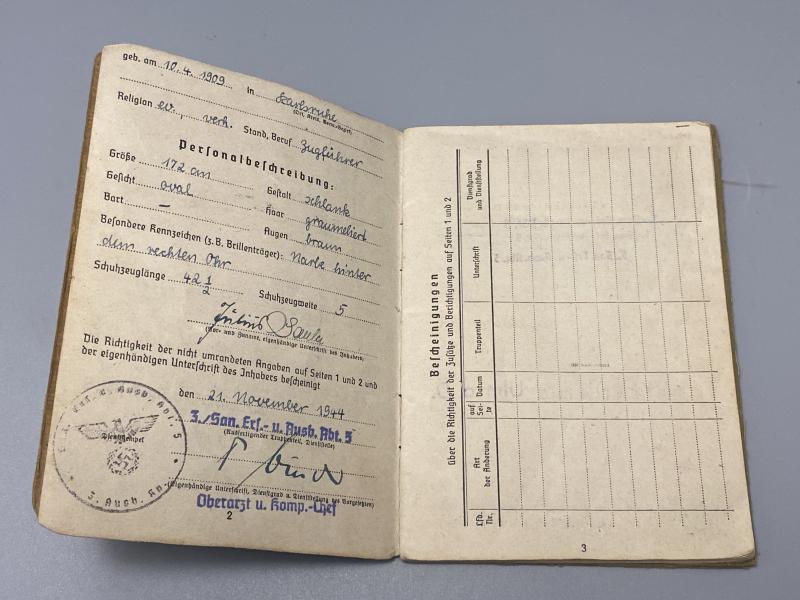 geb. am 10.4.1909 in Karlsruhe
(Ort, Kreis, Verw.-Bezirk)
Religion ev., verh. Stand, Beruf Zugführer
Personalbeschreibung:
Größe 172 cm Gestalt schlank
Gesicht oval Haar graumeliert
Bart – Augen braun
Besondere Kennzeichen (z.B. Brillenträger): Narbe hinter
dem rechten Ohr
Schuhzeuglänge 42 1/2 Schuhzeugweite 5
Julius
(Vor- und Zuname, eigenhändige Unterschrift des Inhabers)
Die Richtigkeit der nicht umrandeten Angaben auf Seiten 1 und 2 und
der eigenhändigen Unterschrift des Inhabers bescheinigt
den 21. November 1944
3./San. Ers.- u. Ausb. Abt. 5
(Ausfertigender Truppenteil, Dienststelle)
Dienststempel
u. Ausb. Abt. 5
(Eigenhändige Unterschrift, Dienstgrad u. Dienststellung des Vorgesetzten)
Oberarzt u. Komp.-Chef
2
Bescheinigungen
über die Richtigkeit der Zusätze und Berichtigungen auf Seiten 1 und 2
Lfd. Nr.
Art der Änderung
auf Sei-te
Datum
Truppenteil
Unterschrift
Dienstgrad und Dienststellung
3